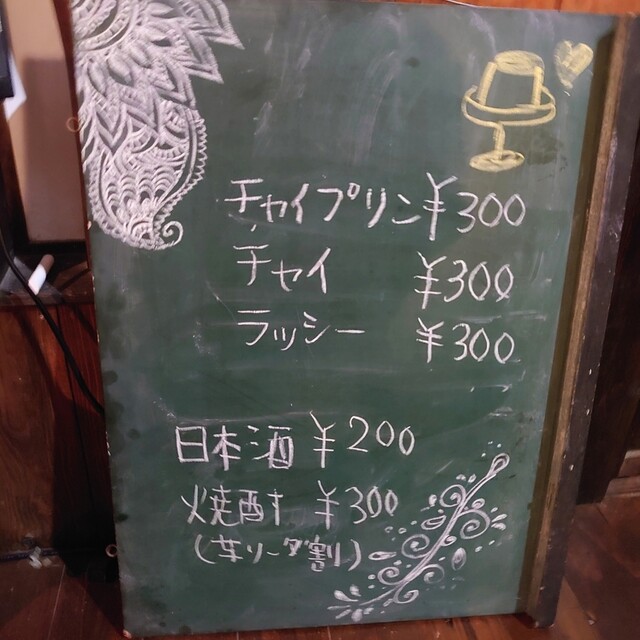 チャイプリン ¥300
チャイ ¥300
ラッシー ¥300
日本酒 ¥200
焼酎 ¥300
(芋ソーダ割)